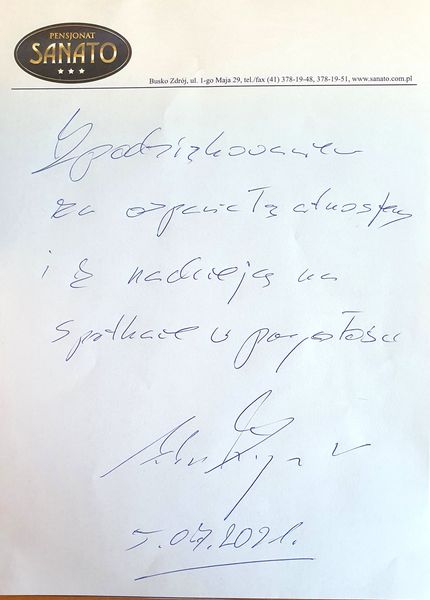 PENSJONAT
SANATO
Busko Zdrój, ul. 1-go Maja 29, tel./fax (41) 378-19-48, 378-19-51, www.sanato.com.pl
Z podziękowaniem
za wspaniałą atmosferę
i z nadzieją na
spotkanie w przyszłości
5.07.2021.